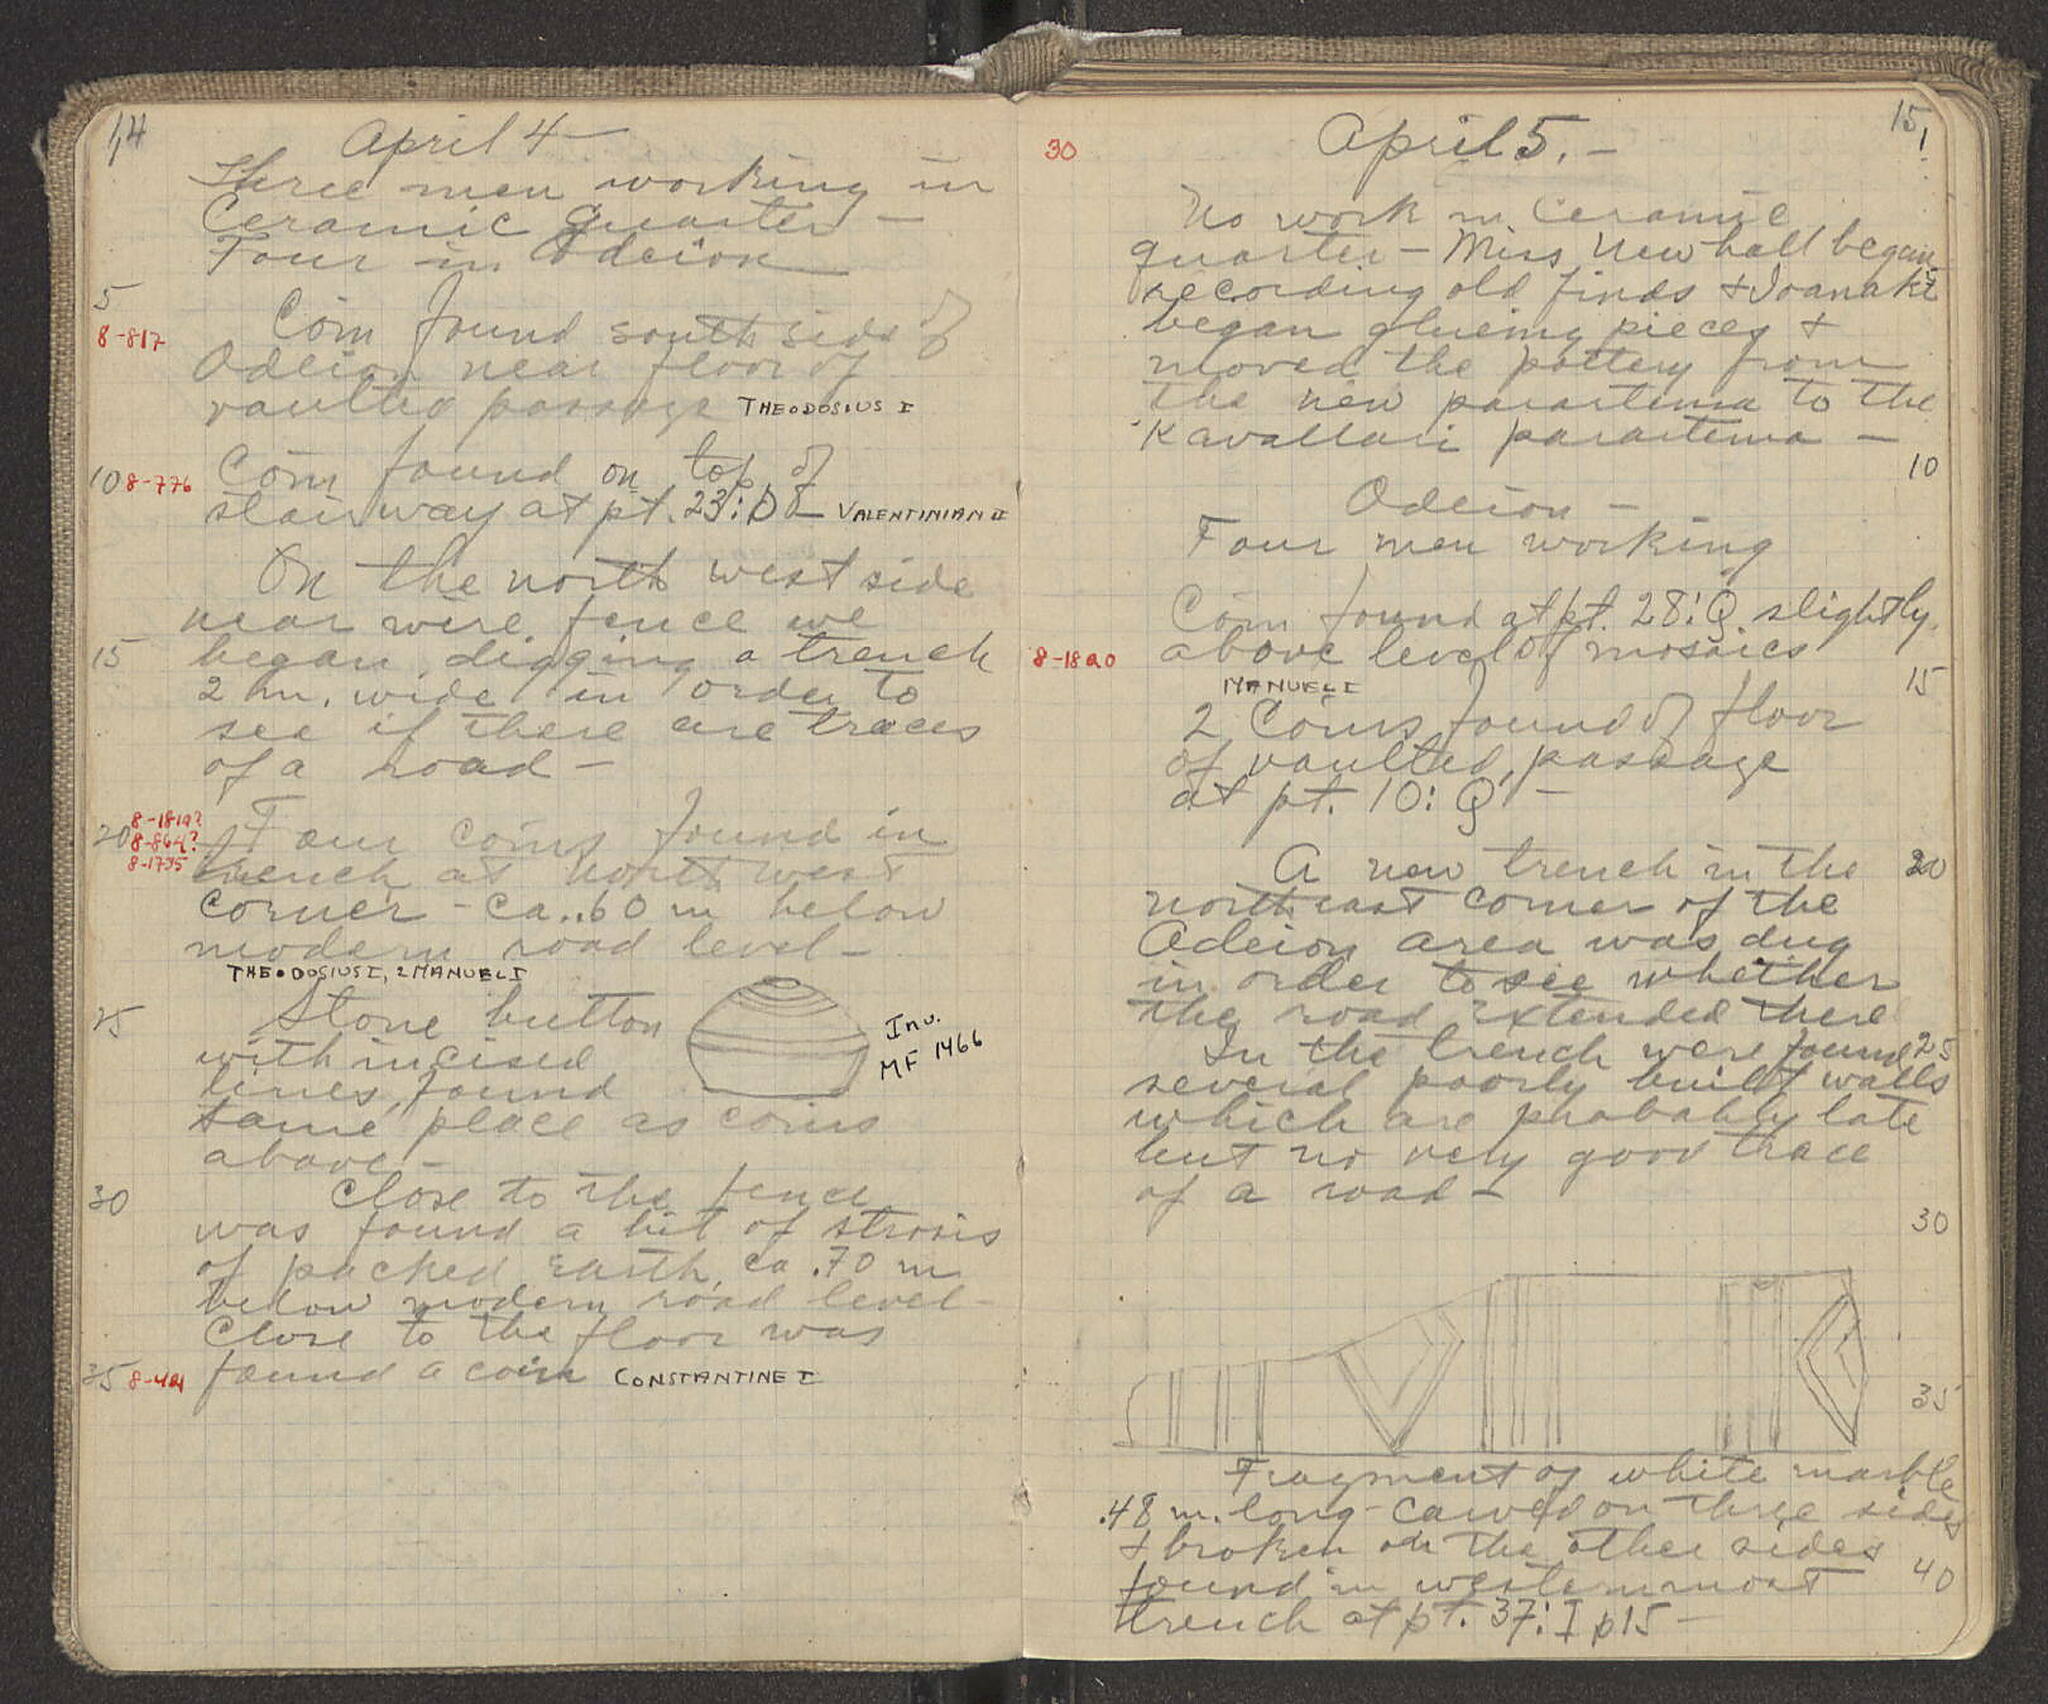 14
April 4 —
Three men working in
Ceramic Quarter —
Four in Odeion
5
8-817
Coin found south side of
Odeion near floor of
vaulted passage THEODOSIUS I
10 8-776 Coin found on top of
stairway at pt. 23:D — VALENTINIAN II
On the north west side
near wire fence we
15 began digging a trench
2 m. wide in order to
see if there are traces
of a road —
8-1819?
20 8-864? Four coins found in
8-1735 trench at north west
corner - ca. .60 m below
modern road level —
THEODOSIUS I, 2 MANUEL I
25 Stone button
with incised
lines, found
same place as coins
above —
Inv.
MF 1466
30 Close to the fence
was found a bit of strosis
of packed earth, ca .70 m
below modern road level —
Close to the floor was
35 found a coin CONSTANTINE I
30
15
April 5. —
No work in Ceramic
quarter — Miss Newhall began
recording old finds & Ioanaki
began glueing pieces &
moved the pottery from
the new parartema to the
Kavallari parartema —
10
Odeion —
Four men working
Coin found at pt. 28:Q slightly
8-1820 above level of mosaics
MANUEL I
15
2 Coins found of floor
of vaulted passage
at pt. 10:Q —
A new trench in the 20
northeast corner of the
Odeion area was dug
in order to see whether
the road extended there
In the trench were found 25
several poorly built walls
which are probably late
but no very good trace
of a road —
30
35
Fragment of white marble
.48 m. long - carved on three sides
& broken on the other sides
found in westernmost 40
trench at pt. 37:I p15 —